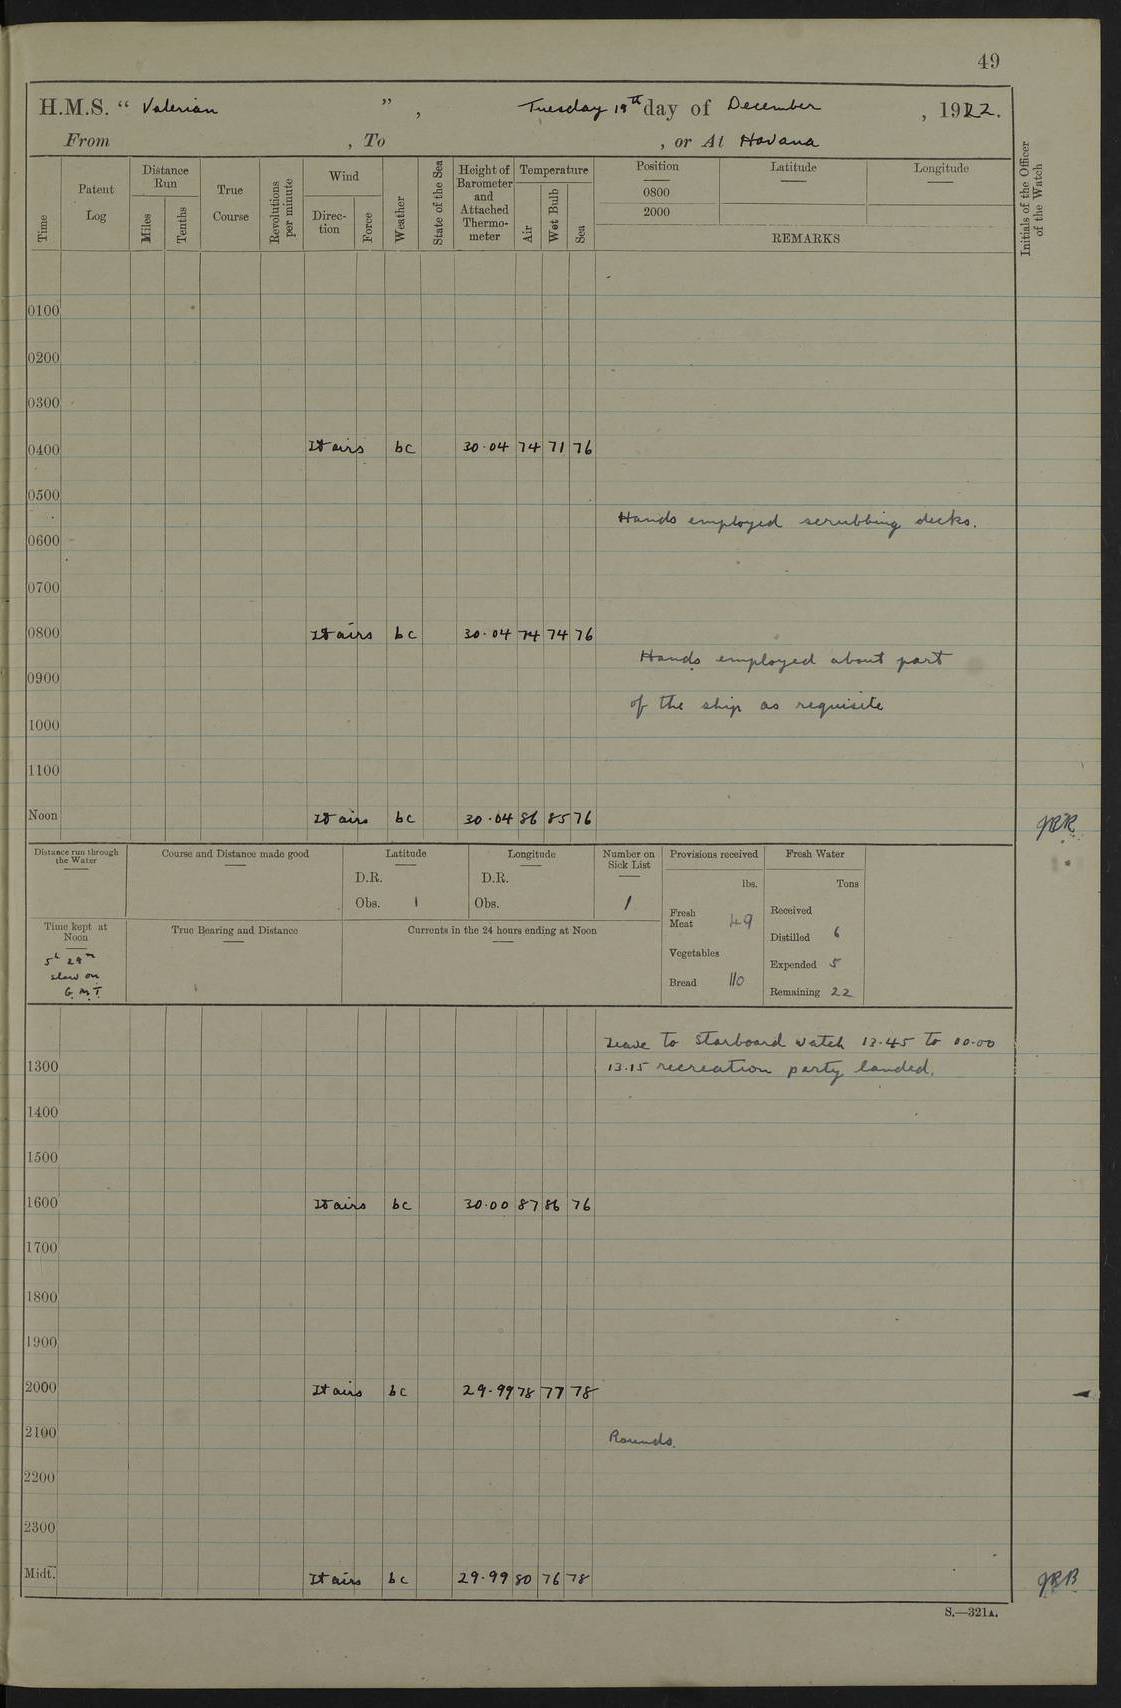 49
H.M.S. “ Valerian ” , Tuesday 19th day of December , 1922.
From , To , or At Havana
Time
Patent Log
Distance Run
Miles
Tenths
True Course
Revolutions per minute
Wind
Direc-tion
Force
Weather
State of the Sea
Height of Barometer and Attached Thermo-meter
Temperature
Air
Wet Bulb
Sea
Position
0800
2000
Latitude
Longitude
REMARKS
Initials of the Officer of the Watch
0100
0200
0300
0400 Lt airs bc 30.04 74 71 76
0500
Hands employed scrubbing decks.
0600
0700
0800 Lt airs bc 30.04 74 74 76
Hands employed about part
0900
of the ship as requisite
1000
1100
Noon Lt airs bc 30.04 86 85 76
Distance run through the Water
Course and Distance made good
Latitude
D.R.
Obs.
Longitude
D.R.
Obs.
Number on Sick List
1
Provisions received
lbs.
Fresh Meat 49
Vegetables
Bread 110
Fresh Water
Tons
Received
Distilled 6
Expended 5
Remaining 22
Time kept at Noon
5h 29m
slow on
G.M.T.
True Bearing and Distance
Currents in the 24 hours ending at Noon
Leave to Starboard watch 13.45 to 00.00
1300 13.15 recreation party landed.
1400
1500
1600 Lt airs bc 30.00 87 86 76
1700
1800
1900
2000 Lt airs bc 29.99 78 77 78
2100 Rounds.
2200
2300
Midt. Lt airs bc 29.99 80 76 78
S.—321A.